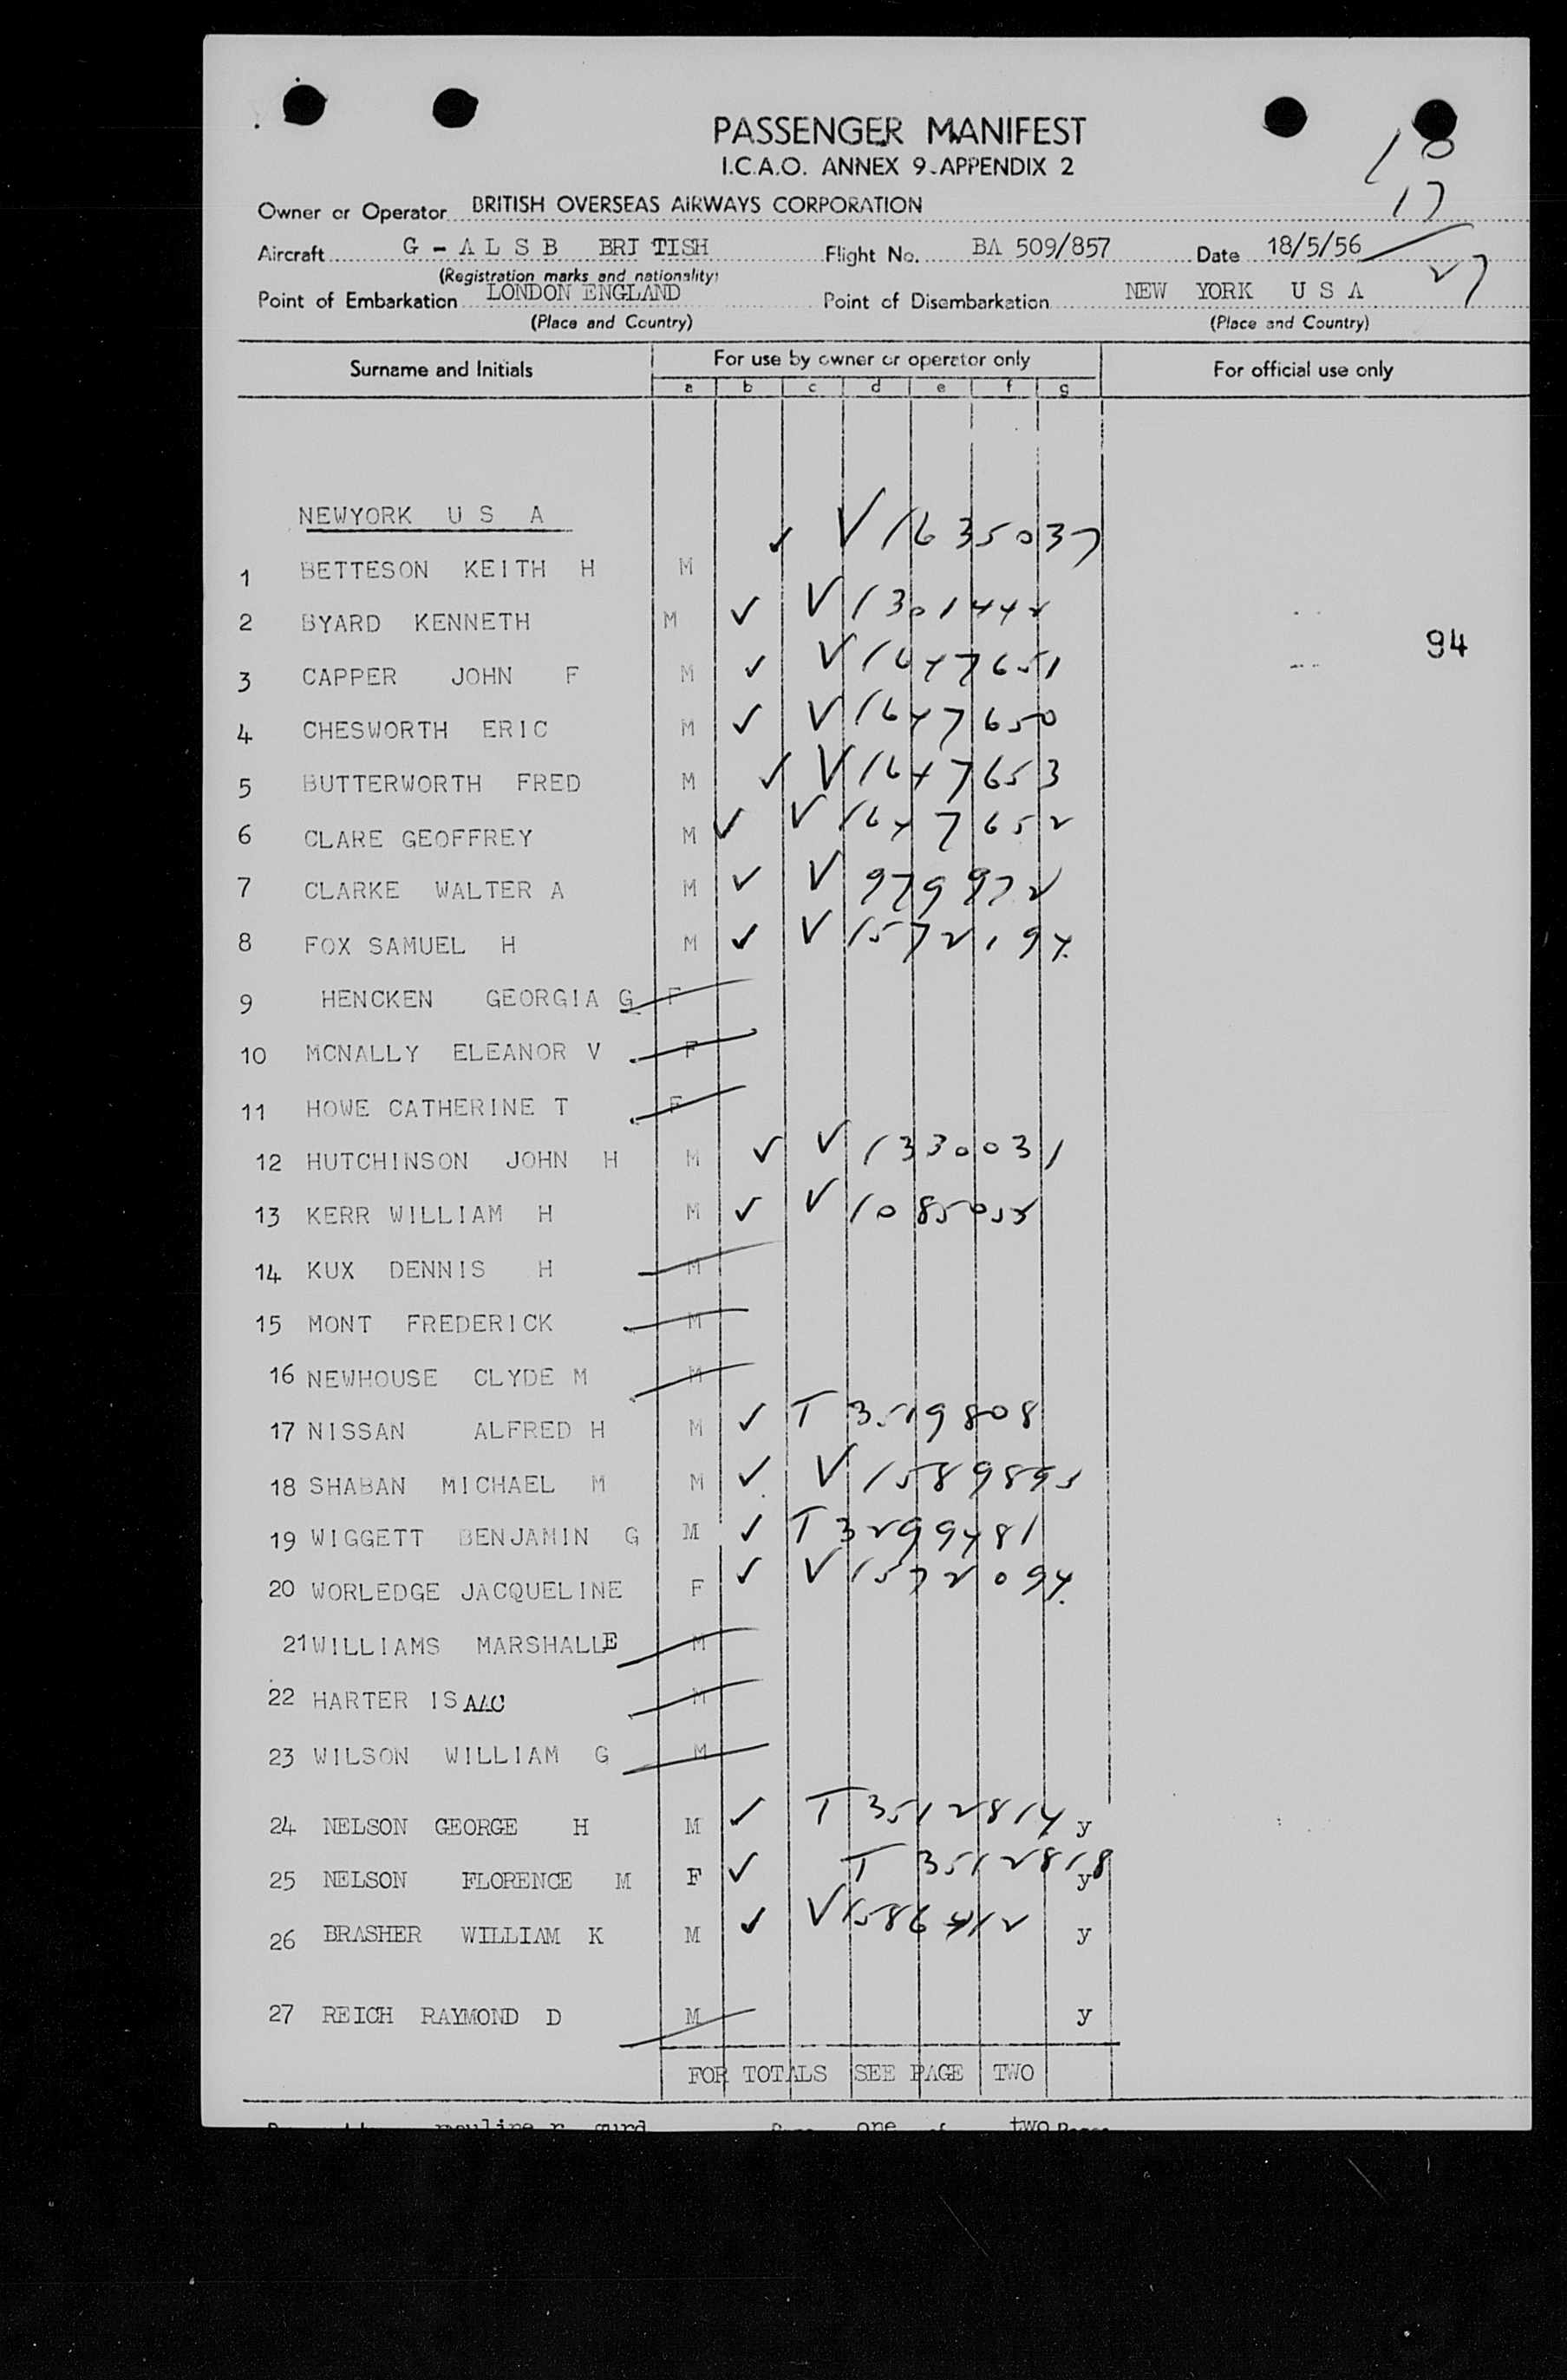 PASSENGER MANIFEST
I.C.A.O. ANNEX 9-APPENDIX 2
10
17
27
Owner or Operator BRITISH OVERSEAS AIRWAYS CORPORATION
Aircraft G - A L S B BRITISH Flight No. BA 509/857 Date 18/5/56
(Registration marks and nationality)
Point of Embarkation LONDON ENGLAND Point of Disembarkation NEW YORK U S A
(Place and Country) (Place and Country)
Surname and Initials For use by owner or operator only For official use only
a b c d e f g
NEWYORK U S A
1 BETTESON KEITH H M ✓ V 1635037
2 BYARD KENNETH M ✓ V 1301442
94
3 CAPPER JOHN F M ✓ V 1647651
4 CHESWORTH ERIC M ✓ V 1647650
5 BUTTERWORTH FRED M ✓ V 1647653
6 CLARE GEOFFREY M ✓ V 1647652
7 CLARKE WALTER A M ✓ V 979972
8 FOX SAMUEL H M ✓ V 1572194
9 HENCKEN GEORGIA G F
10 MCNALLY ELEANOR V F
11 HOWE CATHERINE T F
12 HUTCHINSON JOHN H M ✓ V 1330031
13 KERR WILLIAM H M ✓ V
14 KUX DENNIS H M
15 MONT FREDERICK M
16 NEWHOUSE CLYDE M M
17 NISSAN ALFRED H M ✓ T 3519808
18 SHABAN MICHAEL M M ✓ V 1589895
19 WIGGETT BENJAMIN G M ✓ T 3299481
20 WORLEDGE JACQUELINE F ✓ V 1572094
21 WILLIAMS MARSHALL E M
22 HARTER ISAAC M
23 WILSON WILLIAM G M
24 NELSON GEORGE H M ✓ T 3512814 y
25 NELSON FLORENCE M F ✓ T 3512818 y
26 BRASHER WILLIAM K M ✓ V y
27 REICH RAYMOND D M y
FOR TOTALS SEE PAGE TWO
one two